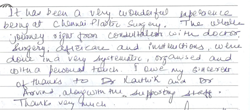 It has been a very wonderful experience
being at Chennai Plastic Surgery. The whole
journey right from consultation with doctor
surgery, aftercare and instructions, were
done in a very systematic, organised and
with a personal touch. I owe my sincere
of thanks to Dr Karthik and Dr
along with the supporting staff.
Thanks very much.